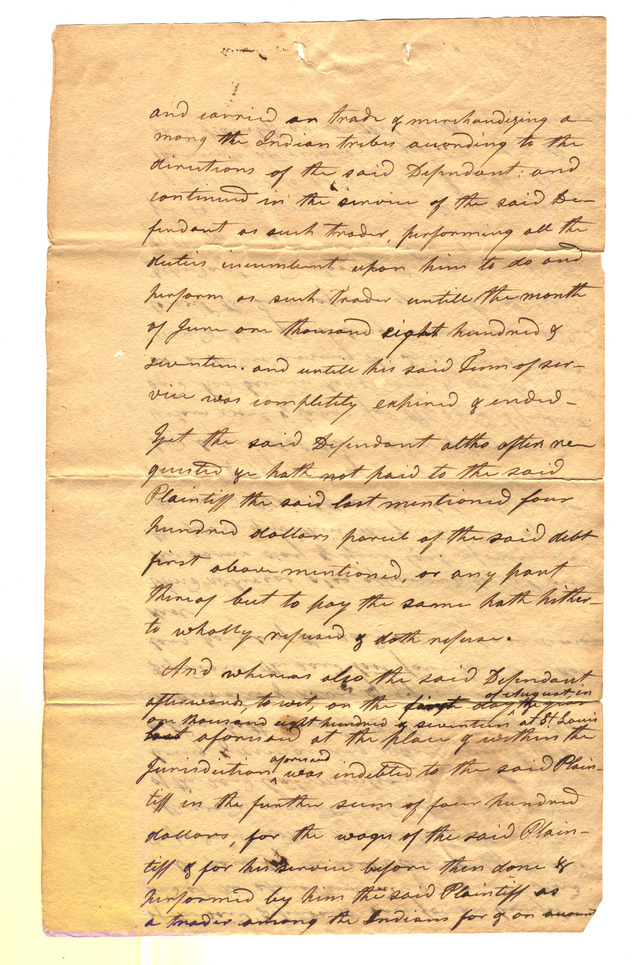 and carried on trade & merchandizing a-
mong the Indian tribes according to the
directions of the said Defendant: and
continued in the service of the said De-
fendant as such trader, performing all the
duties incumbent upon him to do and
perform as such Trader untill the month
of June one thousand eight hundred &
seventeen. and untill his said Term of ser-
vice was completely expired & ended-
Yet the said Defendant altho often re-
quested &c hath not paid to the said
Plaintiff the said last mentioned four
hundred dollars parcel of the said debt
first above mentioned, or any part
thereof but to pay the same hath hither-
to wholly refused & doth refuse.
And whereas also the said Defendant
afterwards, to wit, on the first day of August in the year
one thousand eight hundred & seventeen at St. Louis
aforesaid at the place & within the
Jurisdiction aforesaid was indebted to the said Plain-
tiff in the further sum of four hundred
dollars, for the wages of the said Plain-
tiff & for his service before then done &
performed by him the said Plaintiff as
a trader among the Indians for & on account